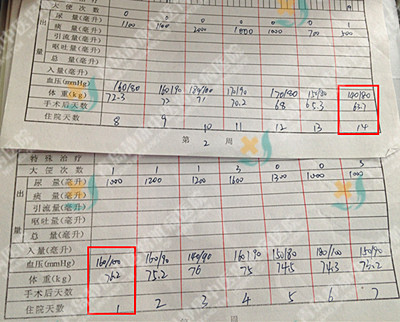 大便次数 0 0 0 0 0 0 1
尿 量(毫升) 1100 2000 1800 1000 700 500
痰 量(毫升)
引流量(毫升)
呕吐量(毫升)
总 量(毫升)
出量
入量(毫升)
血压(mmHg) 160/80 160/90 170/80 140/80
体 重(kg) 72.3 72 71 70.2 68 65.3 63.7
手术后天数
住院天数 8 9 10 11 12 13 14
第 2 周
特殊治疗
大便次数 1 1 1 3 0 0 5
尿 量(毫升) 1000 1200 1200 1600 1300 1000 1000
痰 量(毫升)
引流量(毫升)
呕吐量(毫升)
总 量(毫升)
出量
入量(毫升)
血压(mmHg) 160/100 160/90 180/90 160/90 150/80 180/100 150/90
体 重(kg) 76.2 75.2 76 75 74.5 74.3 73.2
手术后天数
住院天数 1 2 3 4 5 6 7